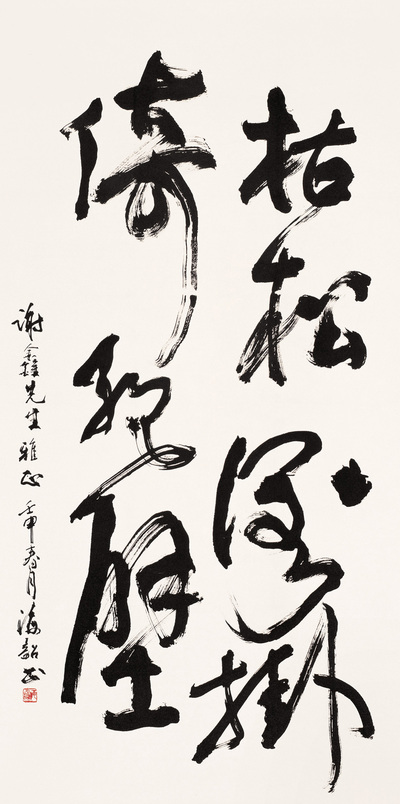 枯松倒掛
倚絕壁
謝鑫先生雅正 壬申春月 海韶书